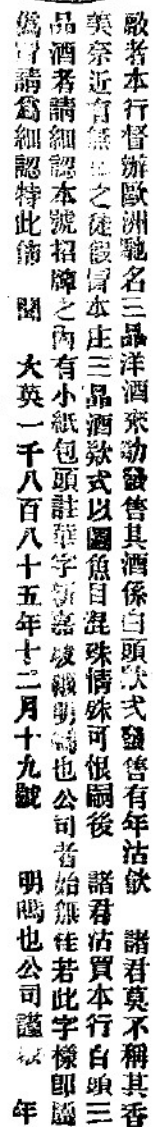 敬者本行督辦歐洲馳名三品洋酒來叻發售其酒係白頭欵式發售有年沽飲 諸君莫不稱其香
美奈近有無 之徒假冒本庄三品酒欵式以圖魚目混珠情殊可恨嗣後 諸君沽買本行白頭三
品酒者請細認本號招牌之內有小紙包頭註華字新嘉坡緞明嗎也公司者始無 若此字樣卽屬
僞冒請爲細認特此佈 聞 大英一千八百八十五年十二月十九號 明嗎也公司謹 年